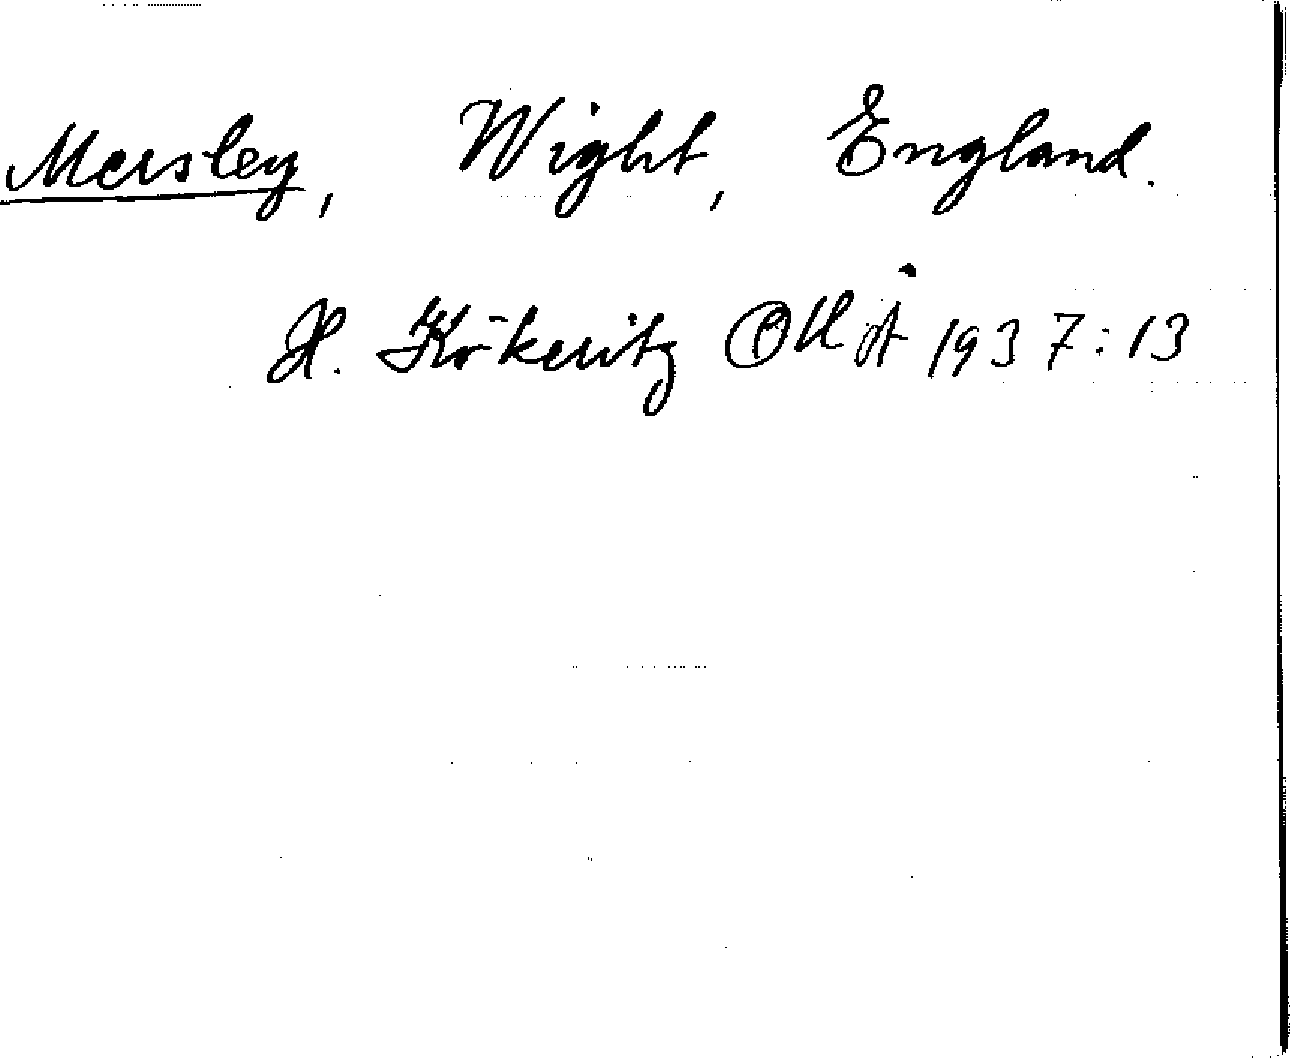 Mersley, Wight, England.
H. Kökeritz OUÅ 1937:13